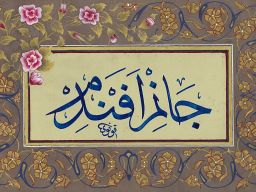 جانم افندم